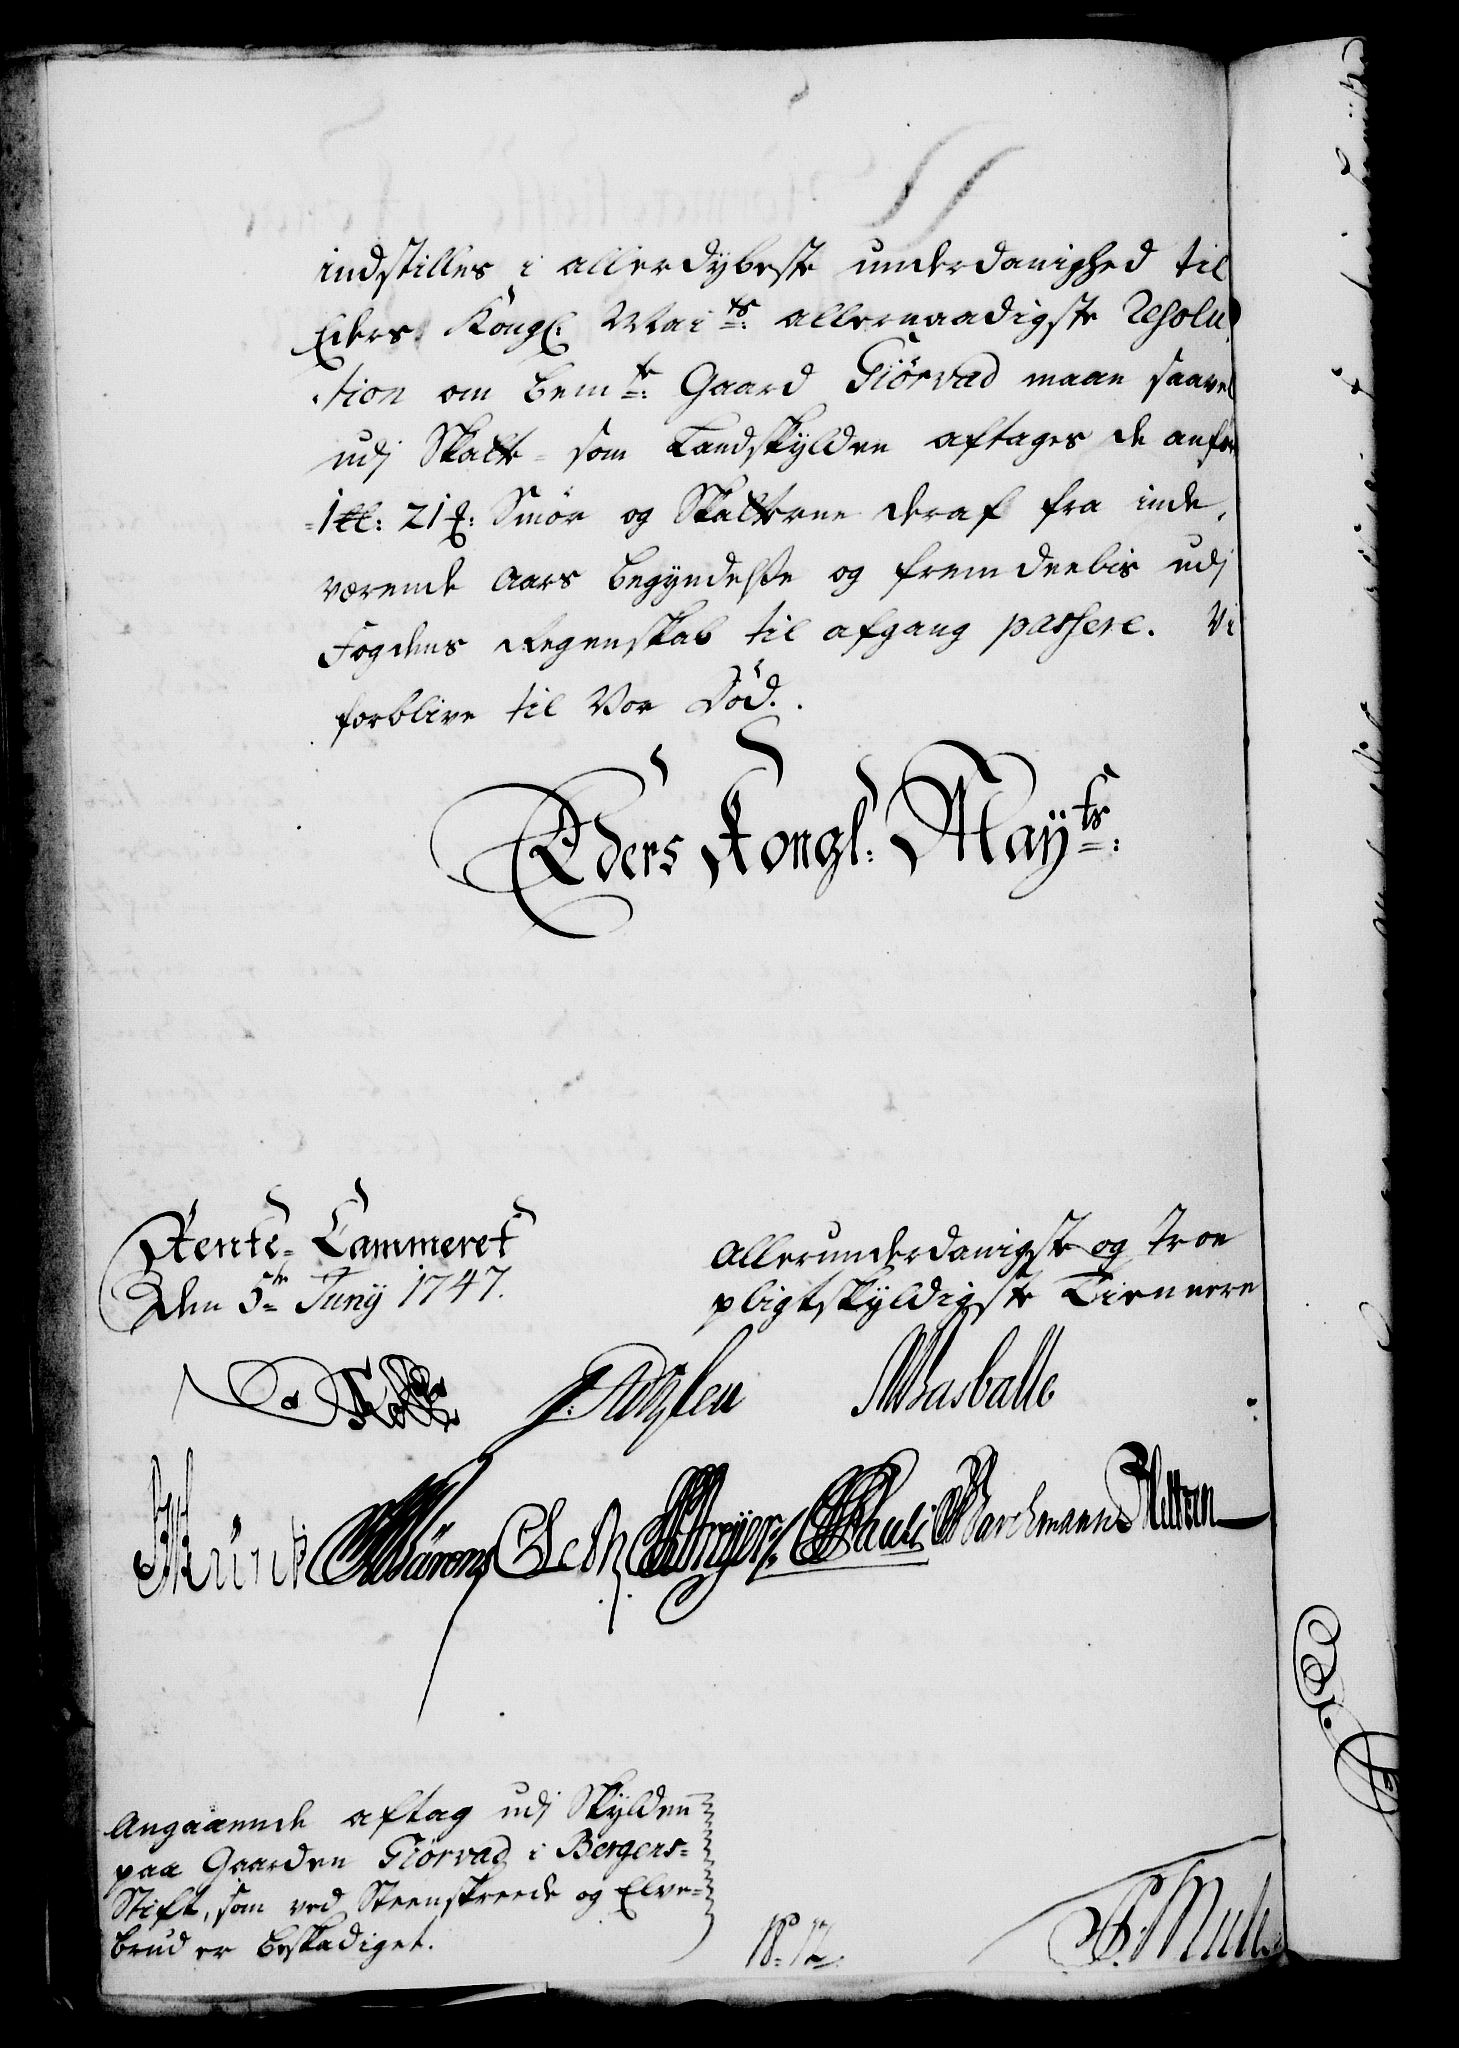 indstilles i allerdybeste underdanighed til
Eders Kongl: Maits: allernaadigste Resolu
tion om bemte: Gaard Tiørvad maae saavel
udj Skatte- som Landskylden aftages de anfør
1 21 Smør og Skatterne deraf fra inde-
værende Aars begyndelse og fremdeelis udj
Fogdens Regenskab til afgang passere. Vi
forblive til Vor Død.
Eders Kongl: Mayts:
Rente-Cammeret
Den 5te Junij 1747.
Allerunderdanigste og troe
pligtskyldigste Tiennere
JWBasballe
Münk Lesth Meyer Pauli Barchmann
Angaaende aftag udj Skylden
paa Gaarden Tiørvad i Bergens-
Stift, som ved Steenskreede og Elve-
brud er beskadiget.